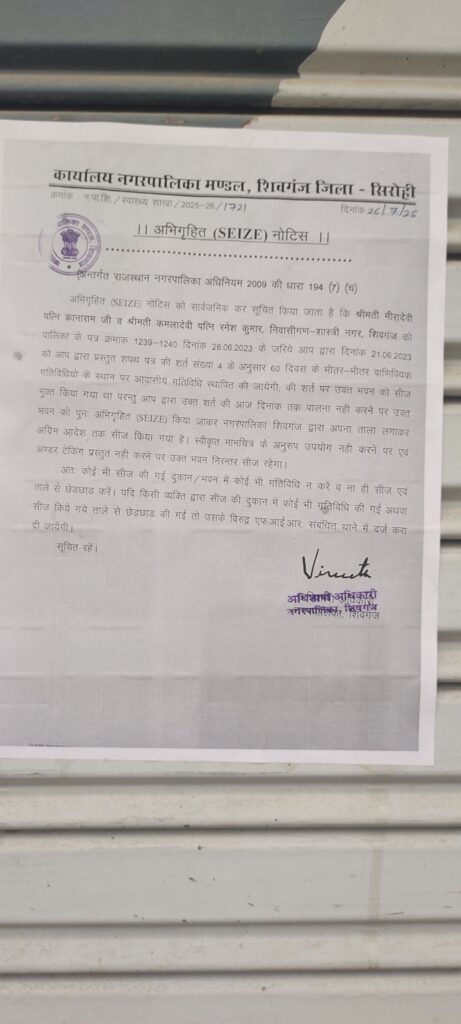 कार्यालय नगरपालिका मण्डल, शिवगंज जिला - सिरोही
क्रमांक : न.पा.शि./स्वास्थ्य शाखा/2025-26/1721 दिनांक 26/7/25
।। अभिगृहित (SEIZE) नोटिस ।।
(अन्तर्गत राजस्थान नगरपालिका अधिनियम 2009 की धारा 194 (7) (च)
अभिगृहित (SEIZE) नोटिस को सार्वजनिक कर सूचित किया जाता है कि श्रीमती मीरादेवी
पत्नि कानाराम जी व श्रीमती कमलादेवी पत्नि रमेश कुमार, निवासीगण-शास्त्री नगर, शिवगंज को
पालिका के पत्र क्रमांक 1239-1240 दिनांक 26.06.2023 के जरिये आप द्वारा दिनांक 21.06.2023
को आप द्वारा प्रस्तुत शपथ पत्र की शर्त संख्या 4 के अनुसार 60 दिवस के भीतर-भीतर वाणिज्यिक
गतिविधियों के स्थान पर आवासीय गतिविधि स्थापित की जायेगी, की शर्त पर उक्त भवन को सीज
मुक्त किया गया था परन्तु आप द्वारा उक्त शर्त की आज दिनांक तक पालना नही करने पर उक्त
भवन को पुनः अभिगृहित (SEIZE) किया जाकर नगरपालिका शिवगंज द्वारा अपना ताला लगाकर
अग्रिम आदेश तक सीज किया गया है। स्वीकृत मानचित्र के अनुरुप उपयोग नही करने पर एवं
अण्डर टेकिंग प्रस्तुत नही करने पर उक्त भवन निरन्तर सीज रहेगा।
अतः कोई भी सीज की गई दुकान/भवन में कोई भी गतिविधि न करें व ना ही सीज एवं
ताले से छेडछाड करें। यदि किसी व्यक्ति द्वारा सीज की दुकान में कोई भी गतिविधि की गई अथवा
सीज किये गये ताले से छेडछाड की गई तो उसके विरुद्व एफ.आई.आर. संबधित थाने में दर्ज करा
दी जायेगी।
सूचित रहें।
अधिशाषी अधिकारी
नगरपालिका, शिवगंज